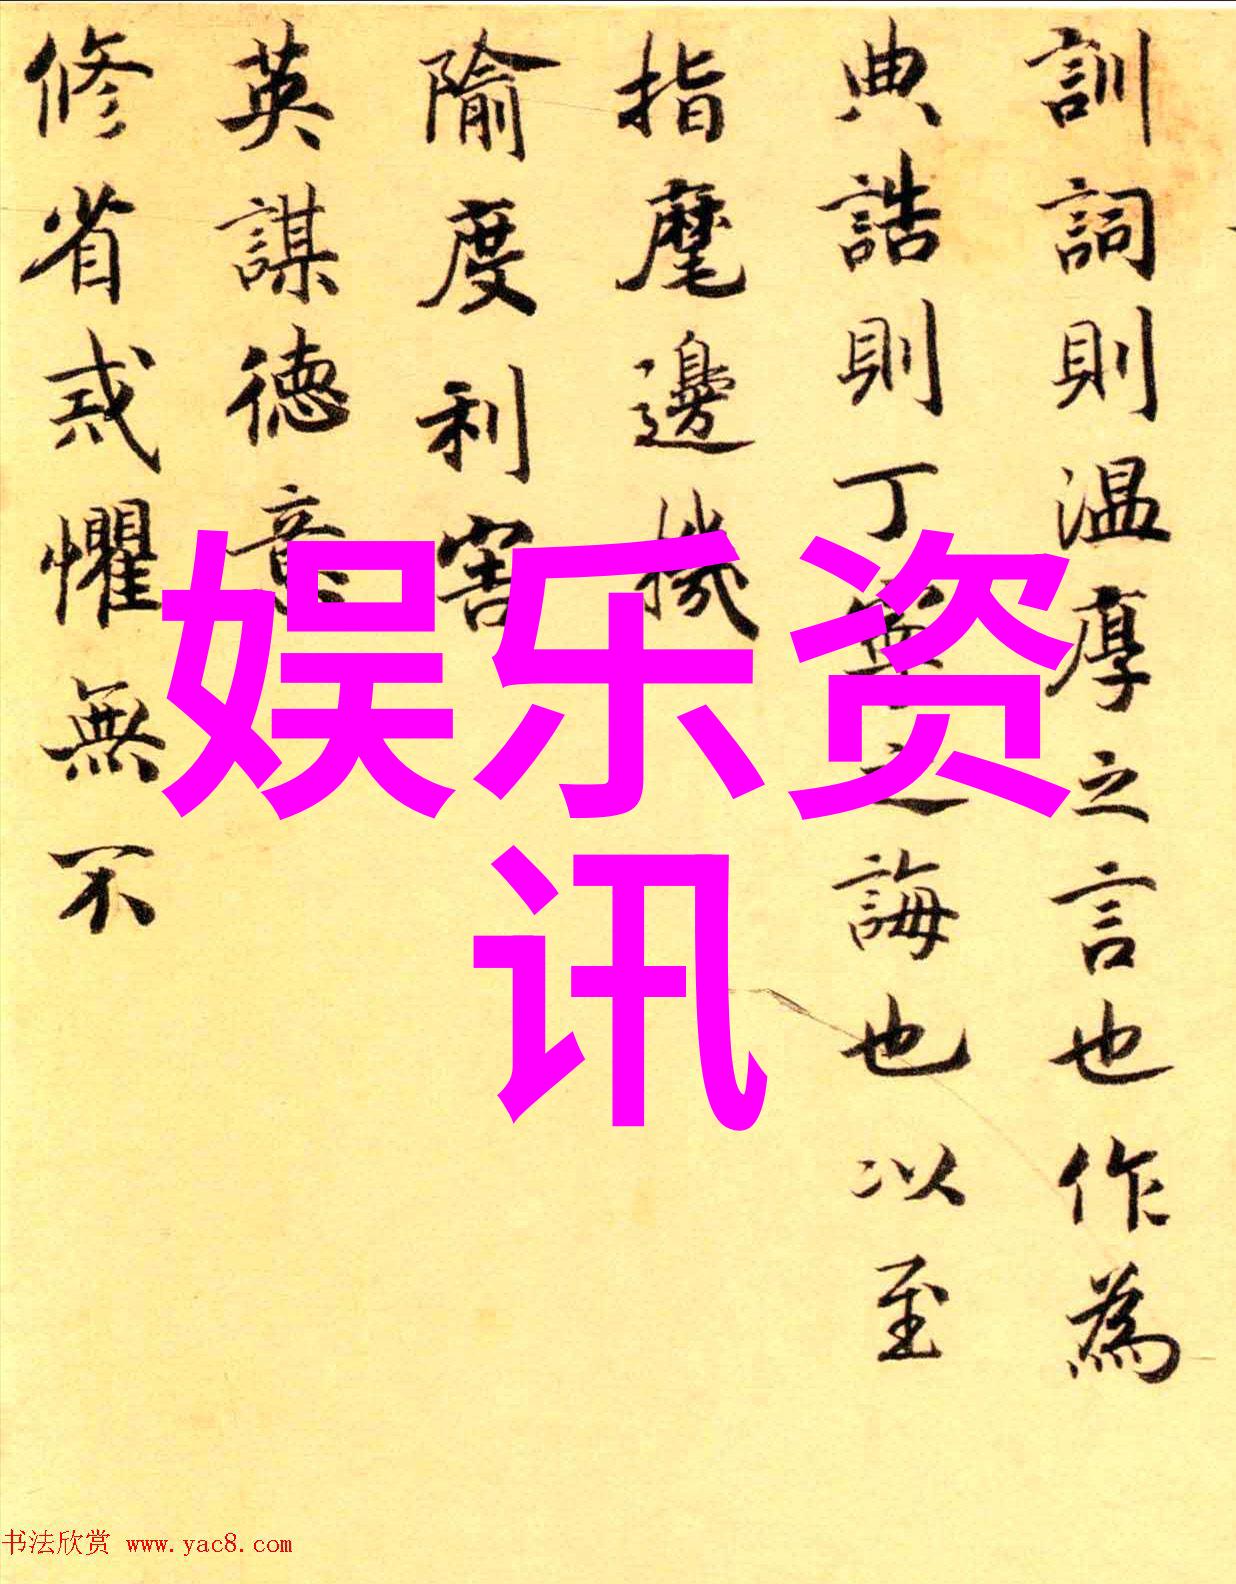 訓詞則温厚之言也作為
典誥則丁寧之誨也以至
指麾邊機
隃度利害
英謀德意
修省戒懼無不
娱乐资
讯
书法欣赏 www.yac8.com